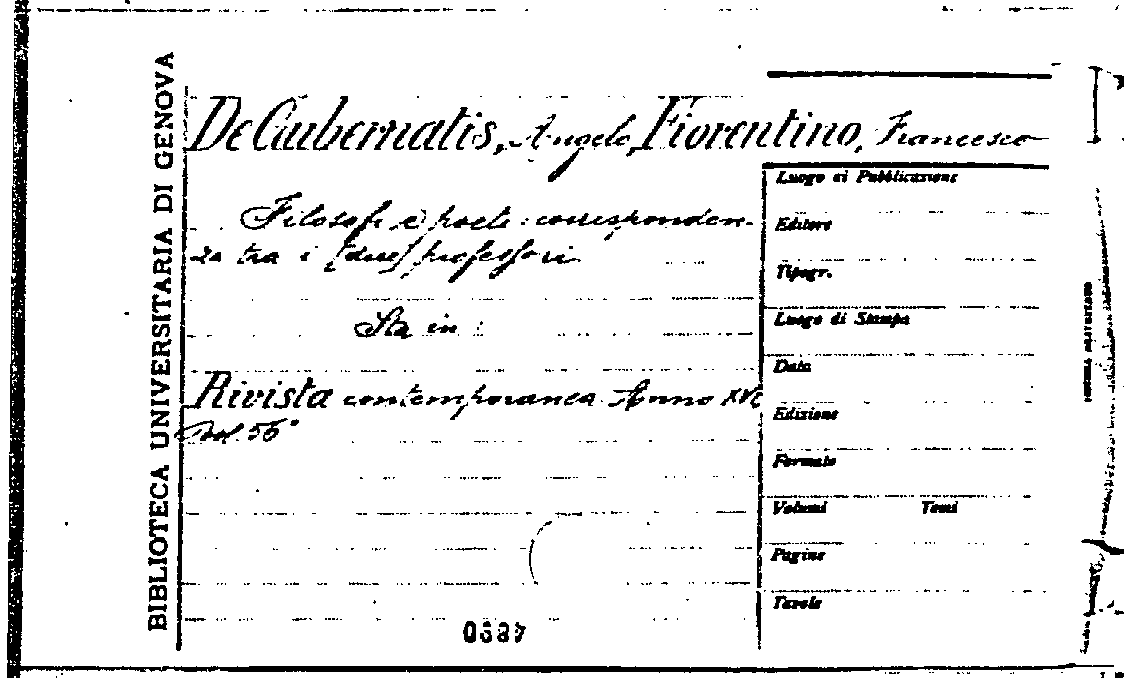 BIBLIOTECA UNIVERSITARIA DI GENOVA
De Gubernatis, Angelo, Fiorentino, Francesco
Filosofi e poeti: corrisponden-
za tra i [due] professori
Sta in:
Rivista contemporanea Anno XVI
Vol. 56°
Luogo di Pubblicazione
Editore
Tipogr.
Luogo di Stampa
Data
Edizione
Formato
Volumi Tomi
Pagine
Tavole